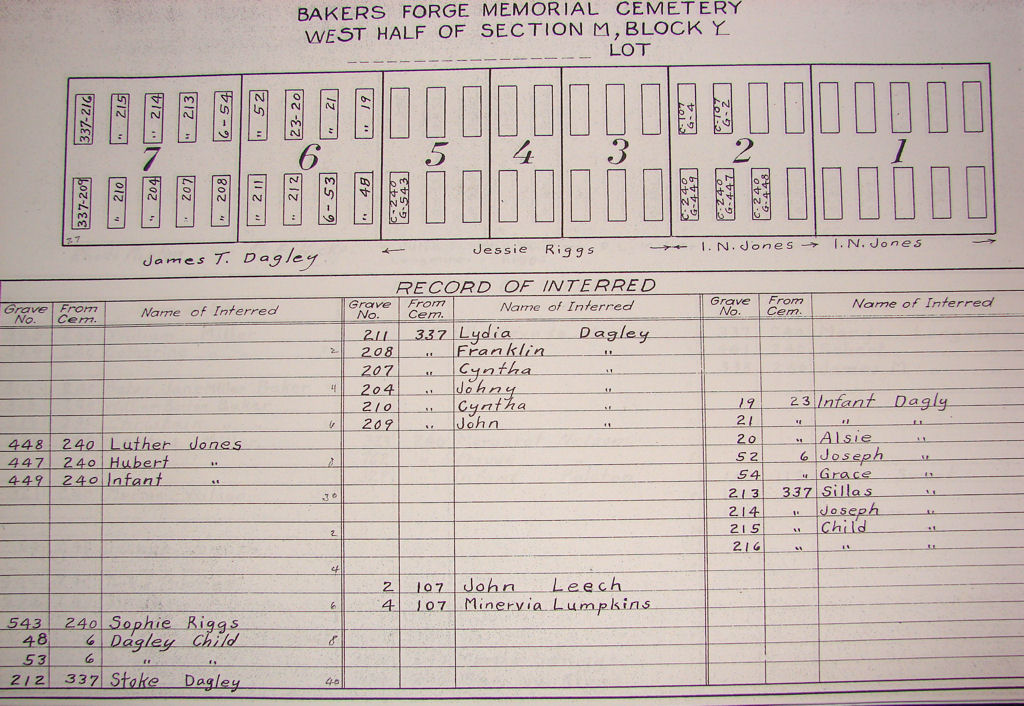 BAKERS FORGE MEMORIAL CEMETERY
WEST HALF OF SECTION M, BLOCK Y
LOT
337-216 " 215 " 214 " 213 6-54 " 52 23-20 " 21 " 19 C-107 G-4 C-107 G-2
7 6 5 4 3 2 1
337-209 " 210 " 204 " 207 " 208 " 211 " 212 6-53 " 48 C-240 G-543 C-240 G-449 C-240 G-447 C-240 G-448
27
James T. Dagley Jessie Riggs I.N. Jones I.N. Jones
RECORD OF INTERRED
Grave No. From Cem. Name of Interred Grave No. From Cem. Name of Interred Grave No. From Cem. Name of Interred
211 337 Lydia Dagley
2 208 " Franklin "
207 " Cyntha "
4 204 " Johny "
210 " Cyntha " 19 23 Infant Dagly
6 209 " John " 21 " " "
448 240 Luther Jones 20 " Alsie "
447 240 Hubert " 8 52 6 Joseph "
449 240 Infant " 54 " Grace "
30 213 337 Sillas "
214 " Joseph "
2 215 " Child "
216 " " "
4
2 107 John Leech
6 4 107 Minervia Lumpkins
543 240 Sophie Riggs
48 6 Dagley Child 8
53 6 " "
212 337 Stoke Dagley 40